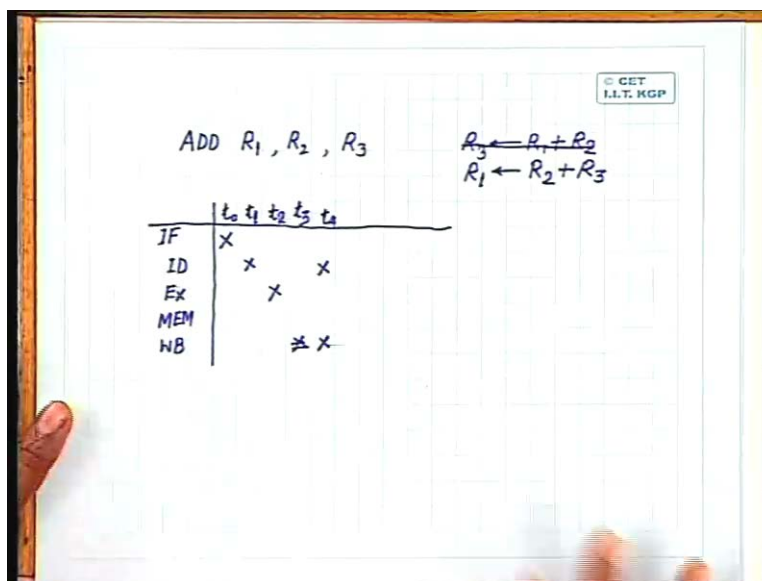 © CET
I.I.T. KGP
ADD R1, R2, R3
R3 ← R1 + R2
R1 ← R2 + R3
t0 t1 t2 t3 t4
IF X
ID X X
EX X
MEM
WB X X